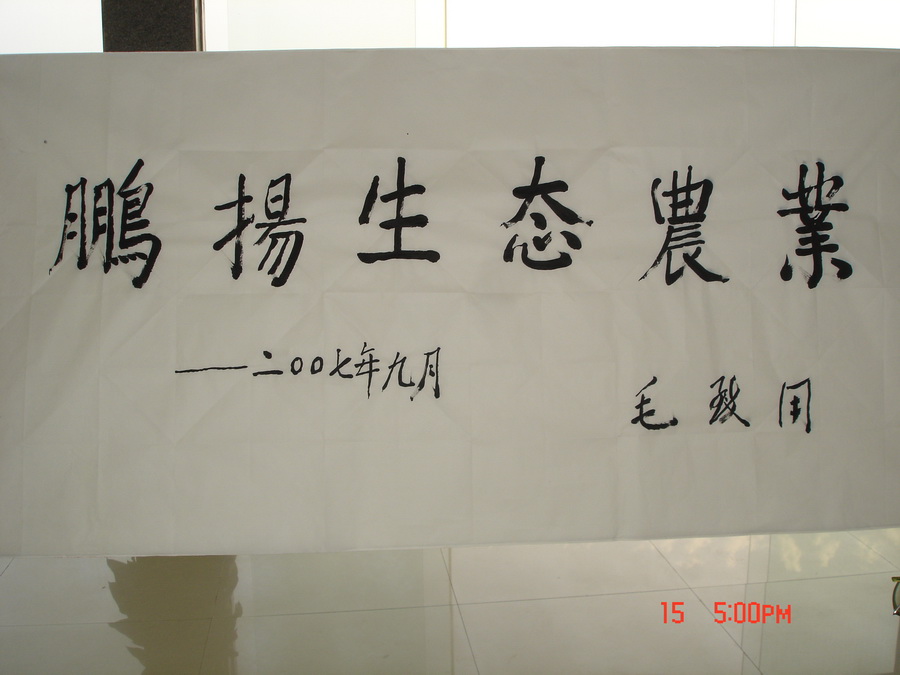 鵬揚生态農業
——二00七年九月
毛致用
15 5:00PM